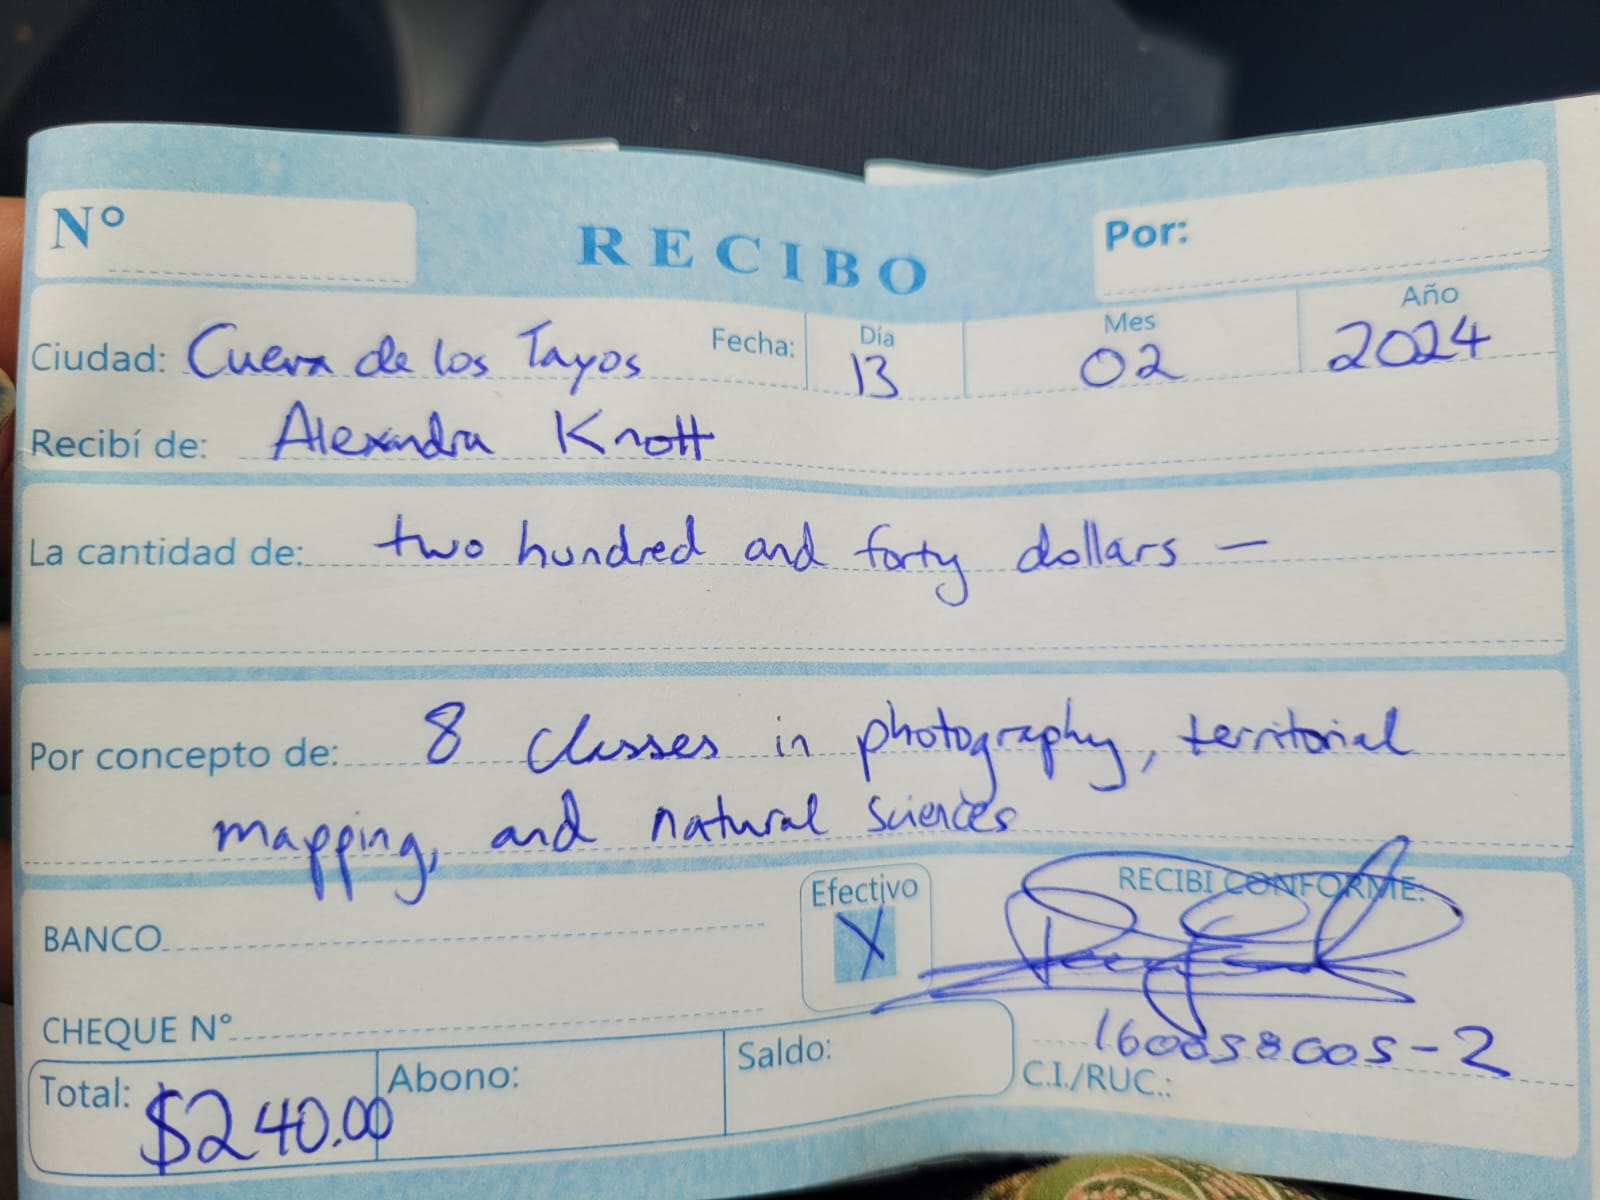 Nº
RECIBO
Por:
Ciudad: Cueva de los Tayos Fecha: Día 13 Mes 02 Año 2024
Recibí de: Alexandra Knott
La cantidad de: two hundred and forty dollars —
Por concepto de: 8 classes in photography, territorial
mapping, and natural sciences
BANCO
Efectivo X
RECIBI CONFORME:
CHEQUE Nº
160058005-2
C.I./RUC.:
Total: $240.00
Abono:
Saldo: